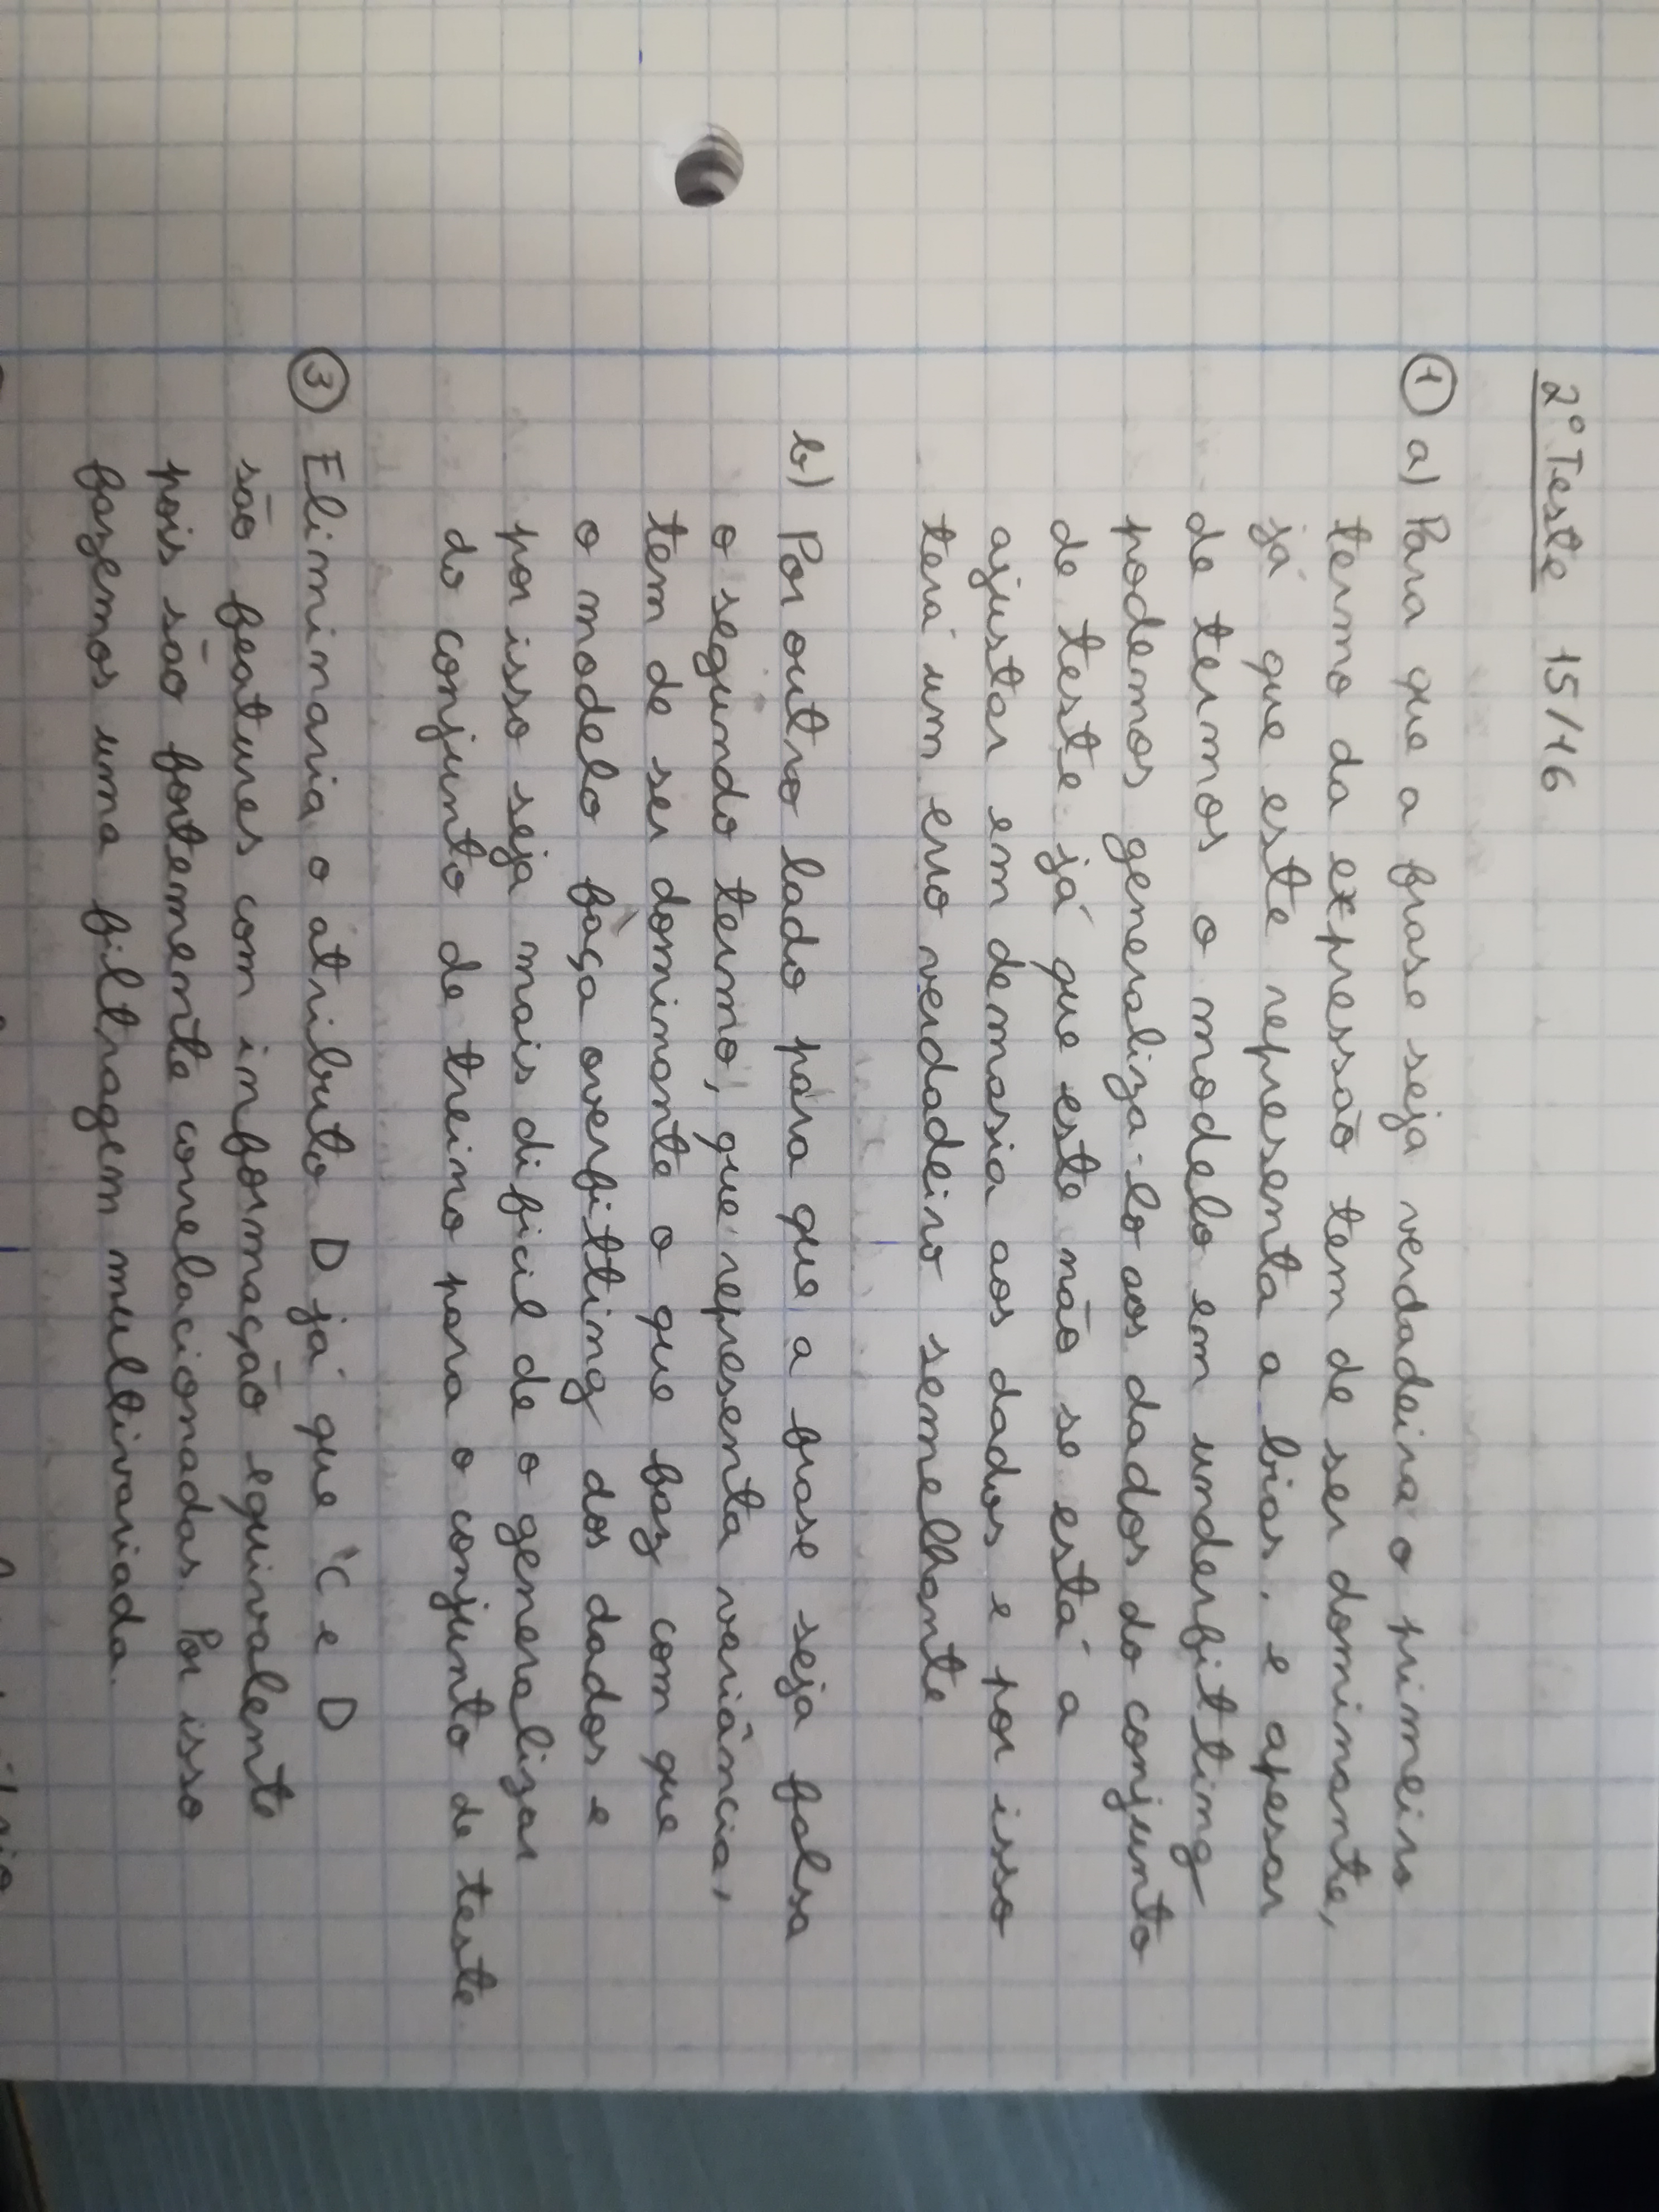 2º Teste 15/16
① a) Para que a frase seja verdadeira o primeiro
termo da expressão tem de ser dominante,
já que este representa a bias, e apesar
de termos o modelo em underfitting
podemos generaliza-lo aos dados do conjunto
de teste já que este não se está a
ajustar em demasia aos dados e por isso
terá um erro verdadeiro semelhante
b) Por outro lado para que a frase seja falsa
o segundo termo, que representa variância,
tem de ser dominante o que faz com que
o modelo faça overfitting dos dados e
por isso seja mais dificil de o generalizar
do conjunto de treino para o conjunto de teste.
③ Eliminaria o atributo D já que C e D
são features com informação equivalente
pois são fortemente correlacionadas. Por isso
fazemos uma filtragem multivariada.